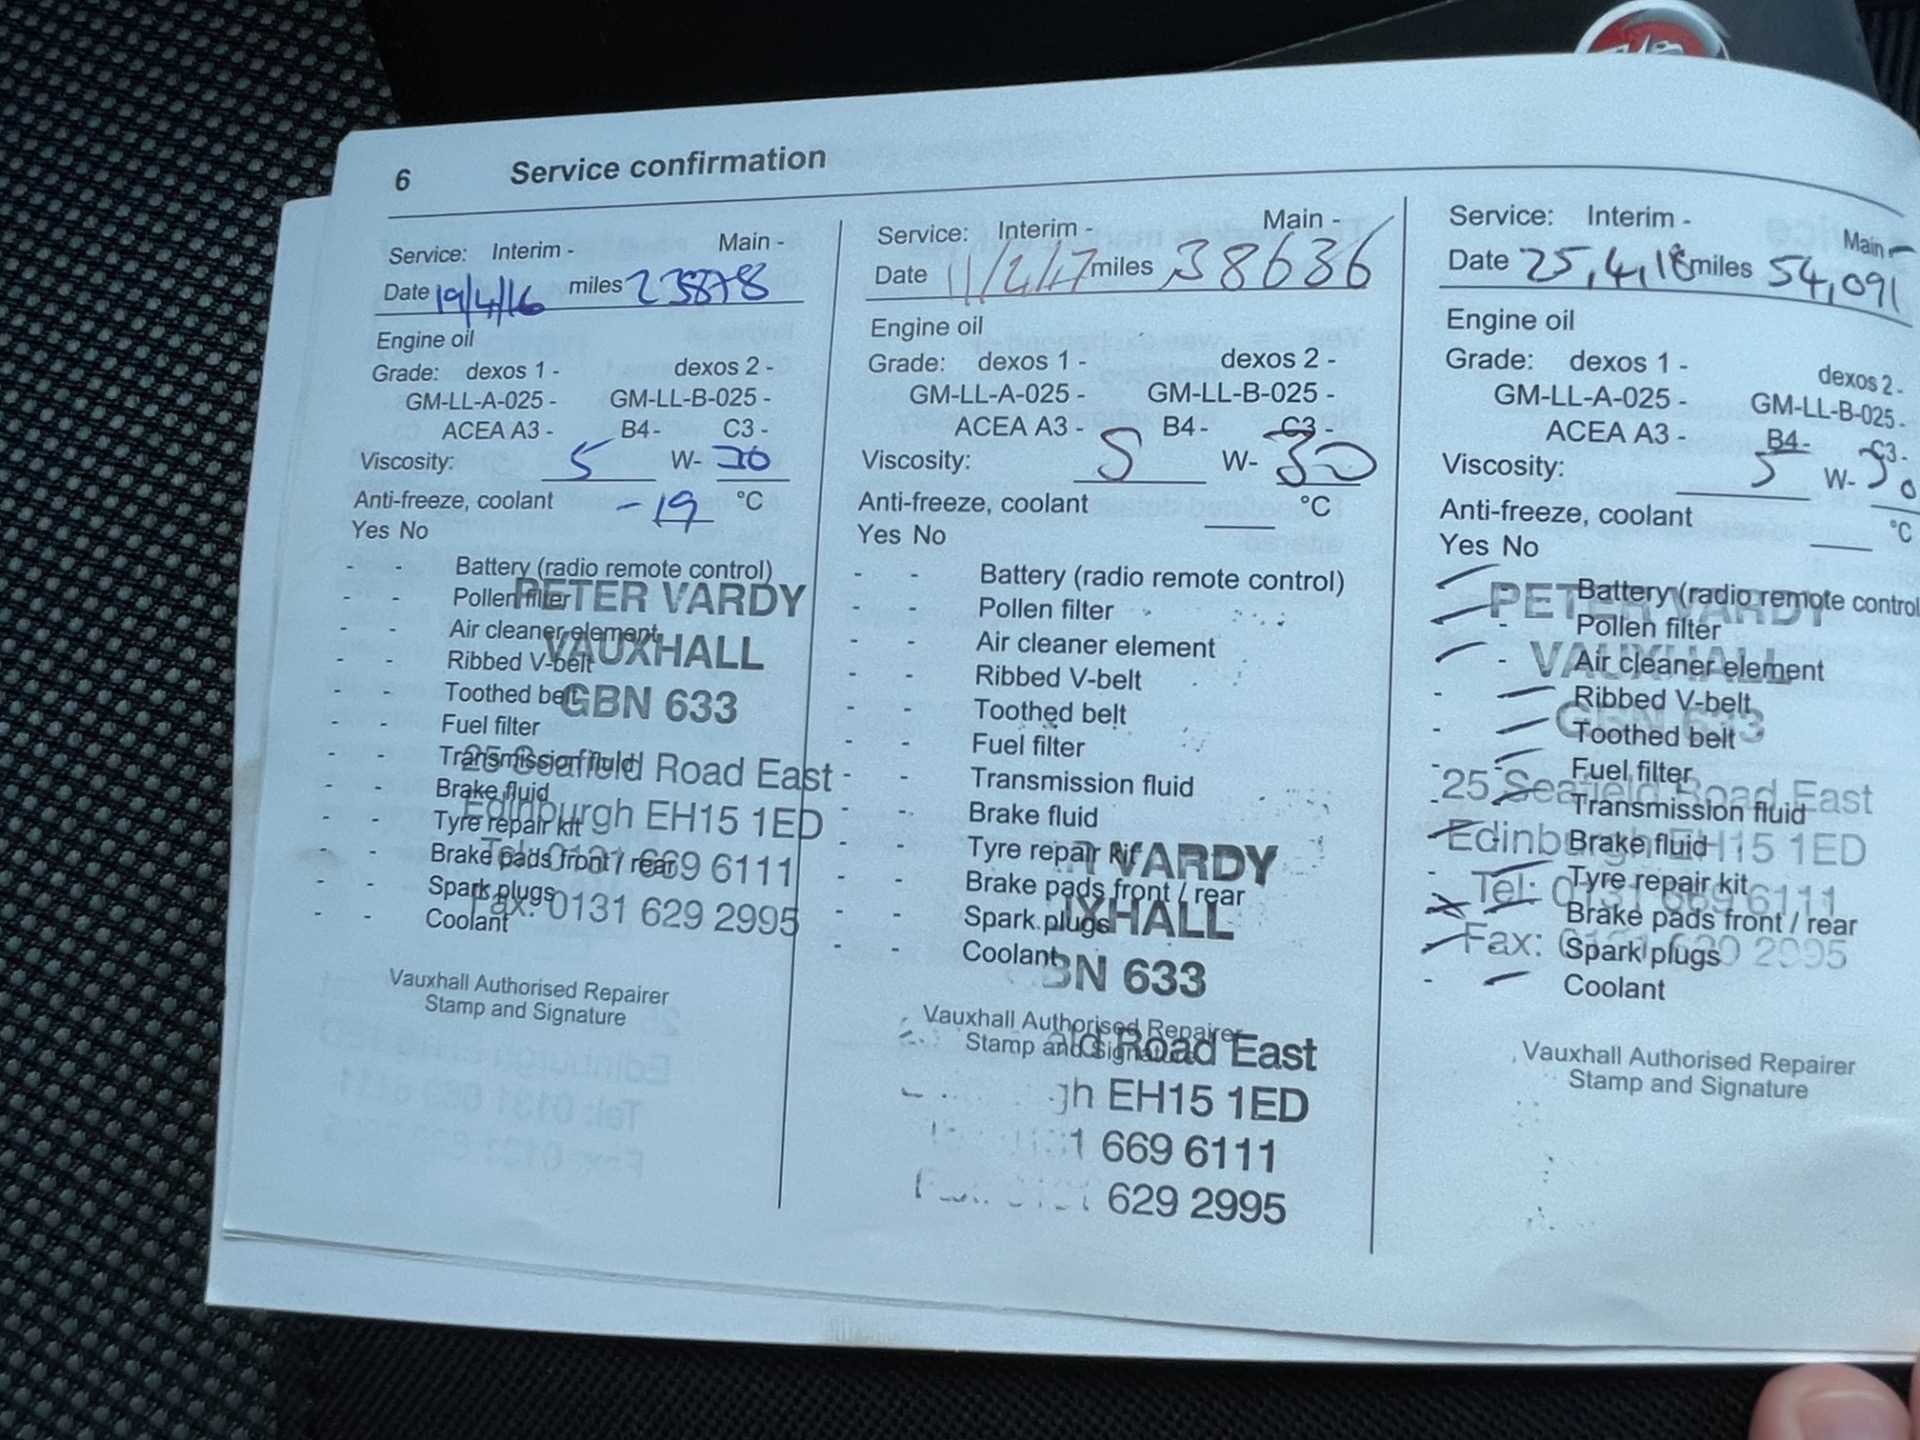 6 Service confirmation
Service: Interim - Main -
Date 19/4/16 miles 23878
Engine oil
Grade: dexos 1 - dexos 2 -
GM-LL-A-025 - GM-LL-B-025 -
ACEA A3 - B4 - C3 -
Viscosity: 5 W- 30
Anti-freeze, coolant -19 °C
Yes No
- - Battery (radio remote control)
- - Pollen filter
- - Air cleaner element
- - Ribbed V-belt
- - Toothed belt
- - Fuel filter
- - Transmission fluid
- - Brake fluid
- - Tyre repair kit
- - Brake pads front / rear
- - Spark plugs
- - Coolant
PETER VARDY
VAUXHALL
GBN 633
25 Seafield Road East
Edinburgh EH15 1ED
Tel: 0131 669 6111
Fax: 0131 629 2995
Vauxhall Authorised Repairer
Stamp and Signature
Service: Interim - Main -
Date 11/2/17 miles 38636
Engine oil
Grade: dexos 1 - dexos 2 -
GM-LL-A-025 - GM-LL-B-025 -
ACEA A3 - B4 - C3 -
Viscosity: 5 W- 30
Anti-freeze, coolant °C
Yes No
- - Battery (radio remote control)
- - Pollen filter
- - Air cleaner element
- - Ribbed V-belt
- - Toothed belt
- - Fuel filter
- - Transmission fluid
- - Brake fluid
- - Tyre repair kit
- - Brake pads front / rear
- - Spark plugs
- - Coolant
VARDY
XHALL
BN 633
Vauxhall Authorised Repairer
Stamp and Signature
ld Road East
gh EH15 1ED
1 669 6111
629 2995
Service: Interim - Main -
Date 25,4,18 miles 54,091
Engine oil
Grade: dexos 1 - dexos 2 -
GM-LL-A-025 - GM-LL-B-025 -
ACEA A3 - B4 - C3 -
Viscosity: 5 W- 30
Anti-freeze, coolant °C
Yes No
Battery (radio remote control
Pollen filter
Air cleaner element
Ribbed V-belt
Toothed belt
Fuel filter
Transmission fluid
Brake fluid
Tyre repair kit
Brake pads front / rear
Spark plugs
Coolant
PETER VARDY
VAUXHALL
GBN 633
25 Seafield Road East
Edinburgh EH15 1ED
Tel: 0131 669 6111
Fax: 0131 629 2995
Vauxhall Authorised Repairer
Stamp and Signature